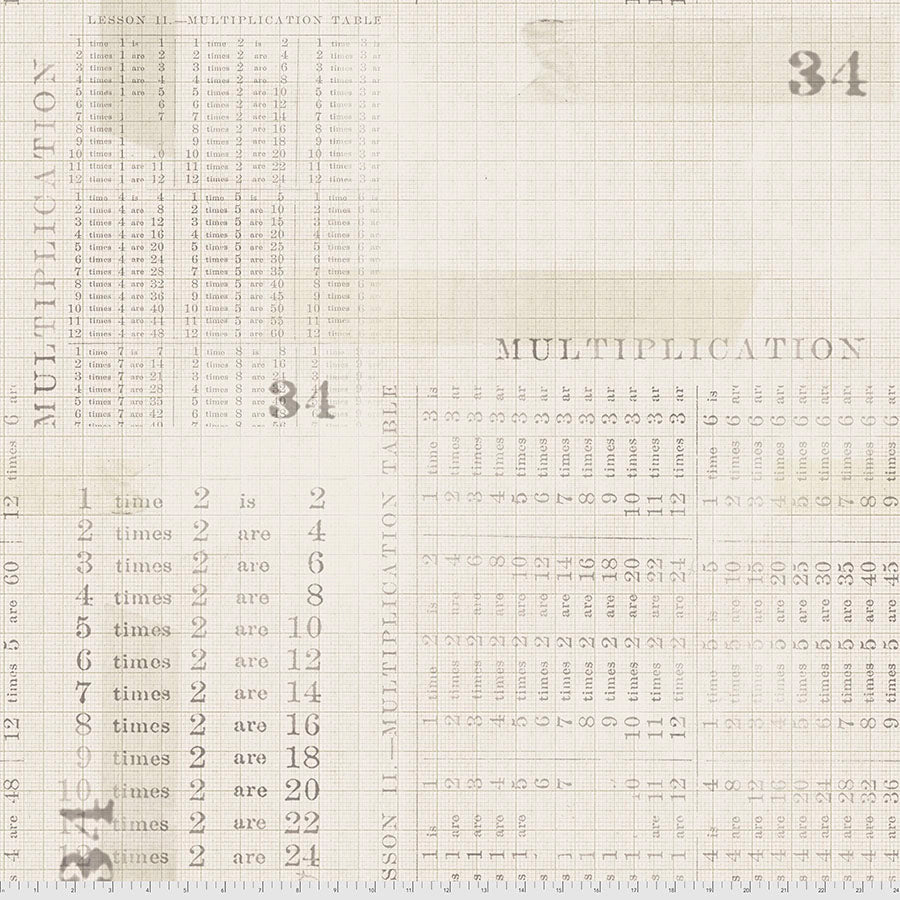 LESSON II.—MULTIPLICATION TABLE
1 time 1 is 1 1 time 2 is 2 1 time 3 is
2 times 1 are 2 2 times 2 are 4 2 times 3 ar
3 times 1 are 3 3 times 2 are 6 3 times 3 ar
4 times 1 are 4 4 times 2 are 8 4 times 3 ar
5 times 1 are 5 5 times 2 are 10 5 times 3 ar
6 times 6 6 times 2 are 12 6 times 3 ar
7 times 1 7 7 times 2 are 14 7 times 3 ar
8 times 1 8 times 2 are 16 8 times 3 ar
9 times 1 9 times 2 are 18 9 times 3 ar
10 times 1 .0 10 times 2 are 20 10 times 3 ar
11 times 1 are 11 11 times 2 are 22 11 times 3 ar
12 times 1 are 12 12 times 2 are 24 12 times 3 ar
1 time 4 is 4 1 time 5 is 5 1 time 6 is
2 times 4 are 8 2 times 5 are 10 2 times 6 ar
3 times 4 are 12 3 times 5 are 15 3 times 6 ar
4 times 4 are 16 4 times 5 are 20 4 times 6 ar
5 times 4 are 20 5 times 5 are 25 5 times 6 ar
6 times 4 are 24 6 times 5 are 30 6 times 6 ar
7 times 4 are 28 7 times 5 are 35 7 times 6 ar
8 times 4 are 32 8 times 5 are 40 8 times 6 ar
9 times 4 are 36 9 times 5 are 45 9 times 6 ar
10 times 4 are 40 10 times 5 are 50 10 times 6
11 times 4 are 44 11 times 5 are 55 11 times
12 times 4 are 48 12 times 5 are 60 12 times 6
1 time 7 is 7 1 time 8 is 8 1 time 9 is
2 times 7 are 14 2 times 8 are 16 2 times 9
3 times 7 are 21 3 times 8 are 24 3 times 9
4 times 7 are 28 4 times 8
5 times 7 are 35 5 times 8
6 times 7 are 42 6 times 8
7 times 7 are 49 7 times 8 are 56
MULTIPLICATION
34
34
MULTIPLICATION
1 time 2 is 2
2 times 2 are 4
3 times 2 are 6
4 times 2 are 8
5 times 2 are 10
6 times 2 are 12
7 times 2 are 14
8 times 2 are 16
9 times 2 are 18
10 times 2 are 20
11 times 2 are 22
12 times 2 are 24
34
12 times 6 ar
12 times 5 are 60
4 are 48
SSON II.—MULTIPLICATION TABLE
1 is 1 1 time 2 is 2 1 time 3 is
1 are 2 2 times 2 are 4 2 times 3 ar
1 are 3 3 times 2 are 6 3 times 3 ar
1 are 4 4 times 2 are 8 4 times 3 ar
1 are 5 5 times 2 are 10 5 times 3 ar
6 6 times 2 are 12 6 times 3 ar
1 7 7 times 2 are 14 7 times 3 ar
1 8 times 2 are 16 8 times 3 ar
1 9 times 2 are 18 9 times 3 ar
1 .0 10 times 2 are 20 10 times 3 ar
s 1 are 11 11 times 2 are 22 11 times 3 ar
s 1 are 12 12 times 2 are 24 12 times 3 ar
4 is 4 1 time 5 is 5 1 time 6 is
s 4 are 8 2 times 5 are 10 2 times 6 ar
s 4 are 12 3 times 5 are 15 3 times 6 ar
s 4 are 16 4 times 5 are 20 4 times 6 ar
s 4 are 20 5 times 5 are 25 5 times 6 ar
s 4 are 24 6 times 5 are 30 6 times 6 ar
s 4 are 28 7 times 5 are 35 7 times 6 ar
s 4 are 32 8 times 5 are 40 8 times 6 ar
s 4 are 36 9 times 5 are 45 9 times 6 ar
1 2 3 4 5 6 7 8 9 10 11 12 13 14 15 16 17 18 19 20 21 22 23 24